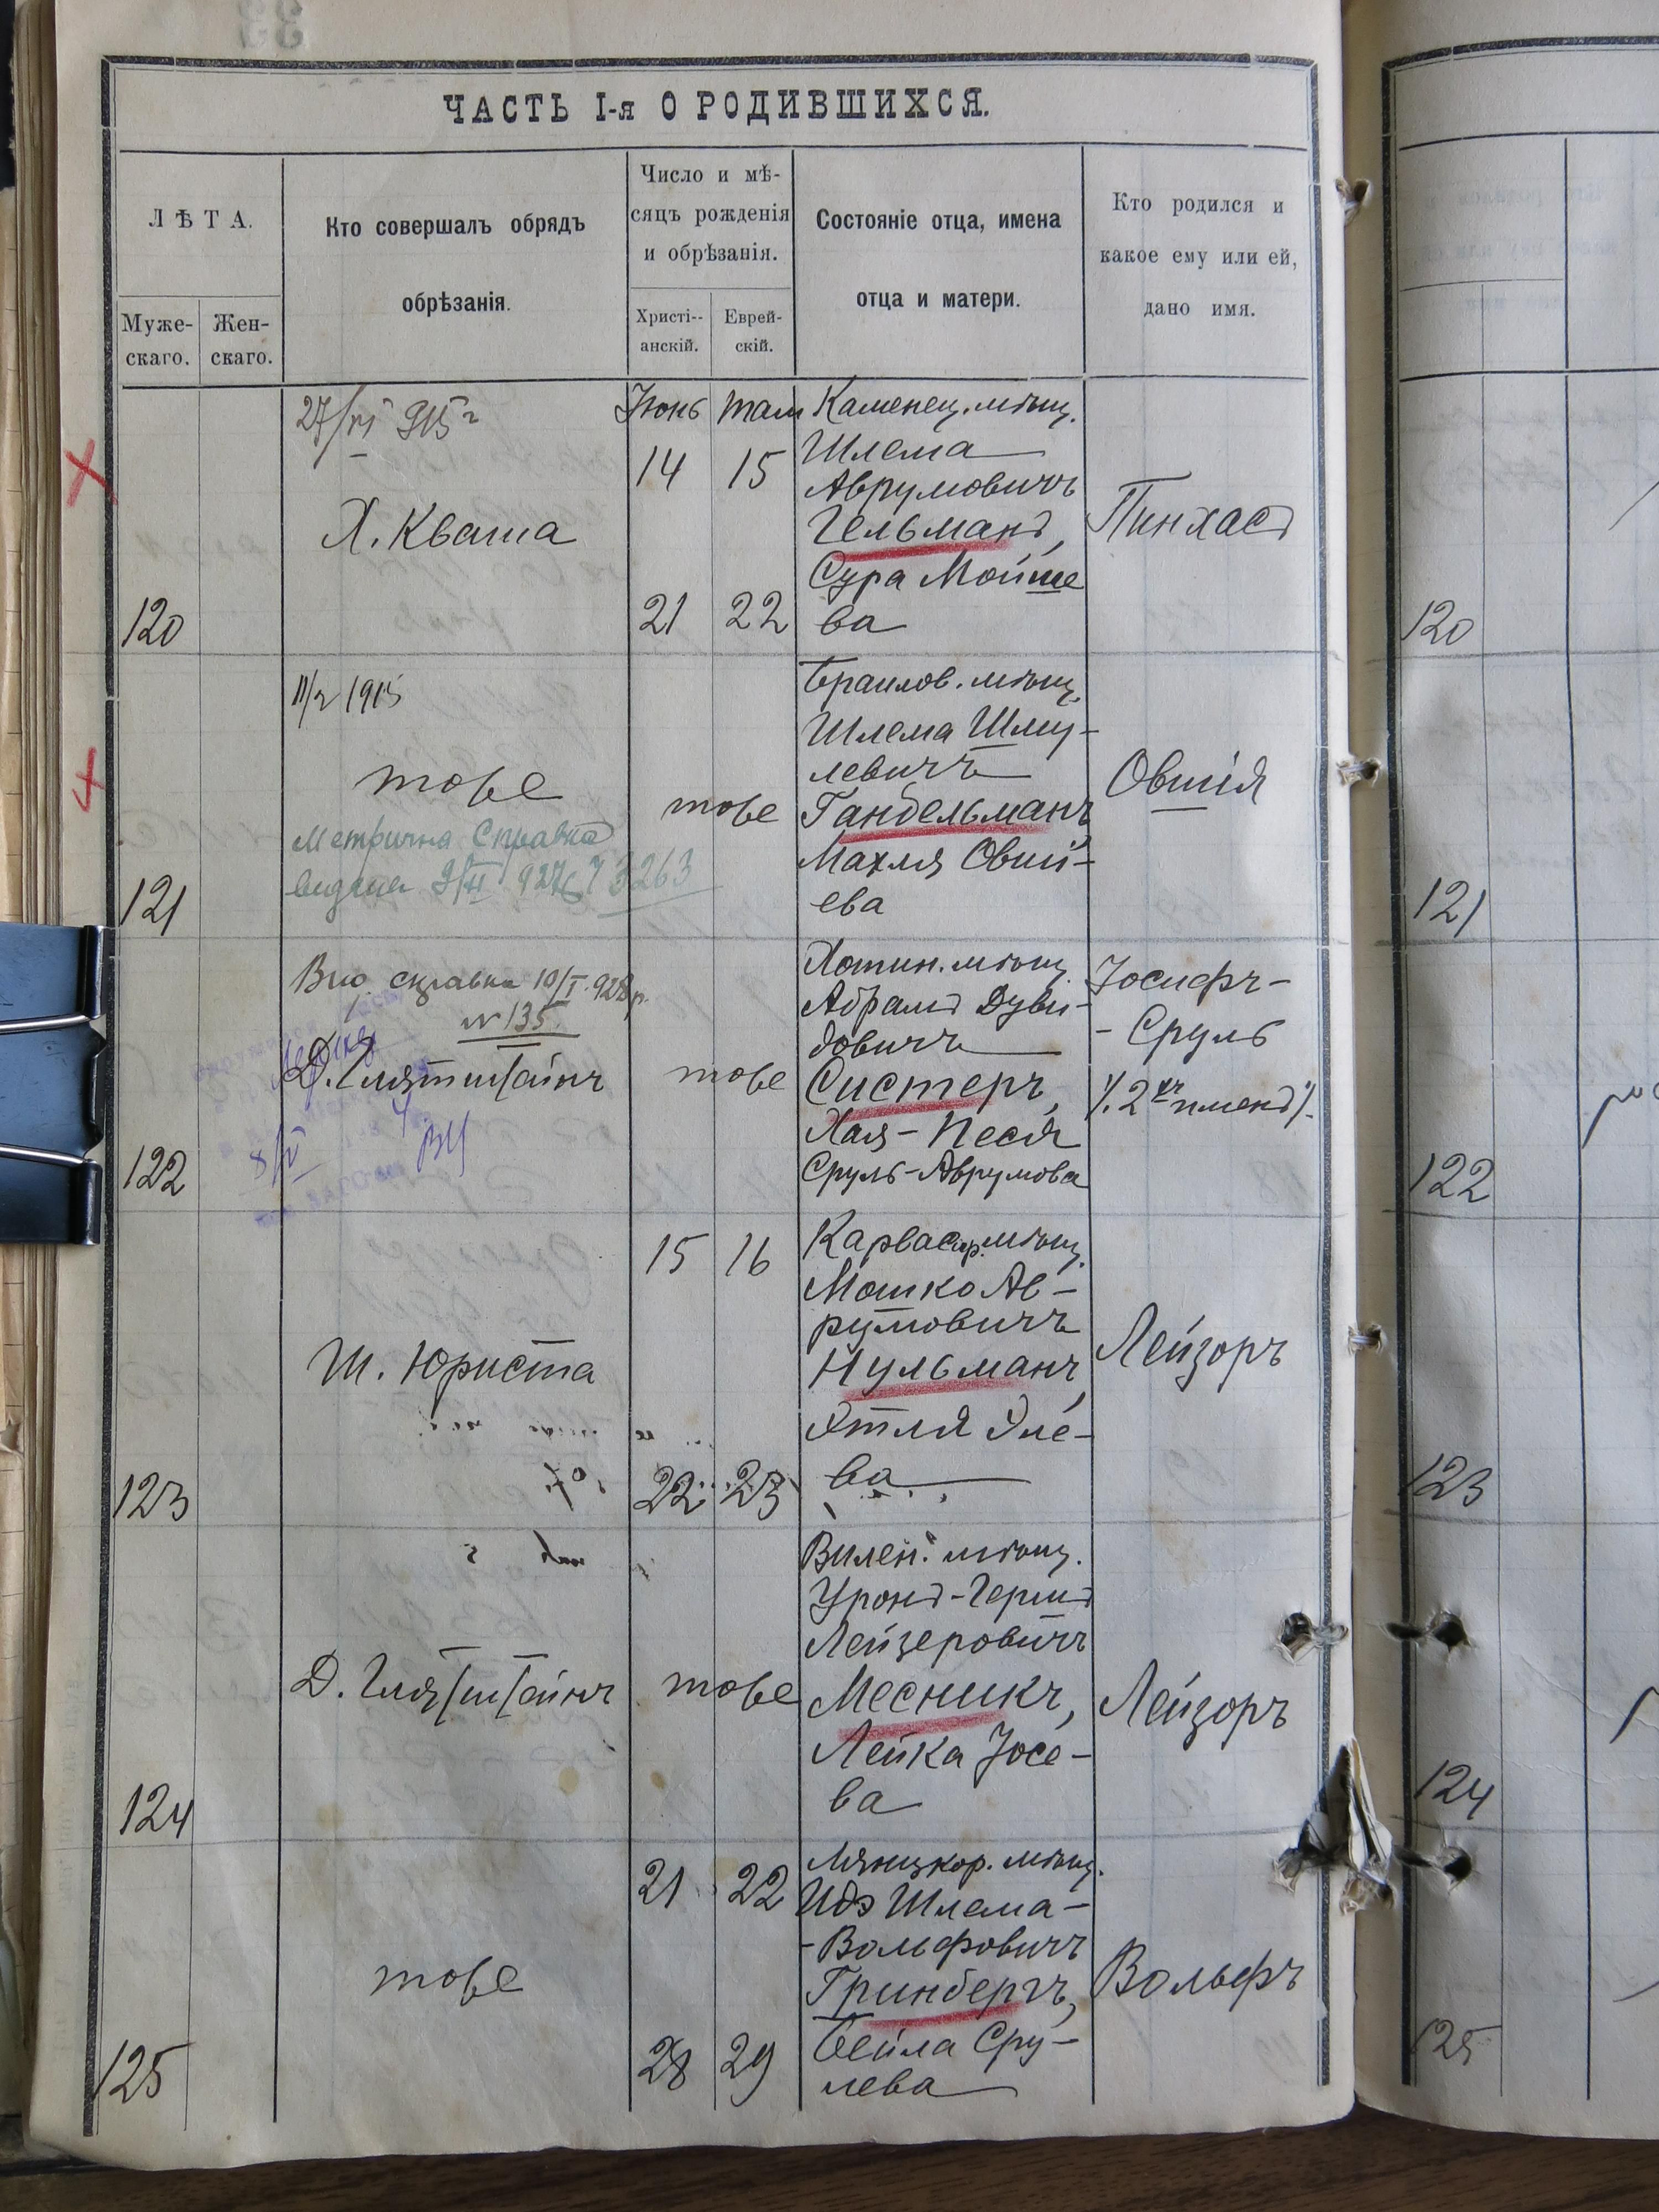 ЧАСТЬ I-я О РОДИВШИХСЯ.
ЛѢТА.
Муже-
скаго.
Жен-
скаго.
Кто совершалъ обрядъ
обрѣзанія.
Число и мѣ-
сяцъ рожденія
и обрѣзанія.
Христі--
анскій.
Еврей-
скій.
Состояніе отца, имена
отца и матери.
Кто родился и
какое ему или ей,
дано имя.
27/VI 915 г
Х. Кваша
120
Іюнь Там
14 15
21 22
Каменец. мѣщ.
Шлема
Аврумовичъ
Гельманъ,
Сура Мойше
ва
Пинхасъ
120
11/2 1915
тоже
Метрична Справка
видана 9/II 927 № 3263
121
тоже
Браилов. мѣщ.
Шлема Шму-
левичъ
Гандельманъ,
Махля Овші-
ева
Овшія
121
справка 10/I 928 р.
№ 135
Д. Глятштайнъ
122
тоже
Хотин. мѣщ.
Абрамъ Дуви-
довичъ
Систеръ,
Хая-Песя
Сруль-Аврумова
Іосифъ-
-Сруль
/. 2хъ именъ /.
122
Ш. Юриста
123
15 16
22 23
Карвасар. мѣщ.
Мошко Ав-
румовичъ
Нульманъ,
Этля Эле-
ва
Лейзоръ
123
Д. Глятштайнъ
124
тоже
Вилен. мѣщ.
Уронъ-Гершъ
Лейзеровичъ
Месникъ,
Лейка Іосе-
ва
Лейзоръ
124
тоже
125
21 22
28 29
Лянцкор. мѣщ.
Идэ Шлема-
-Вольфовичъ
Гринбергъ,
Бейла Сру-
лева
Вольфъ
125